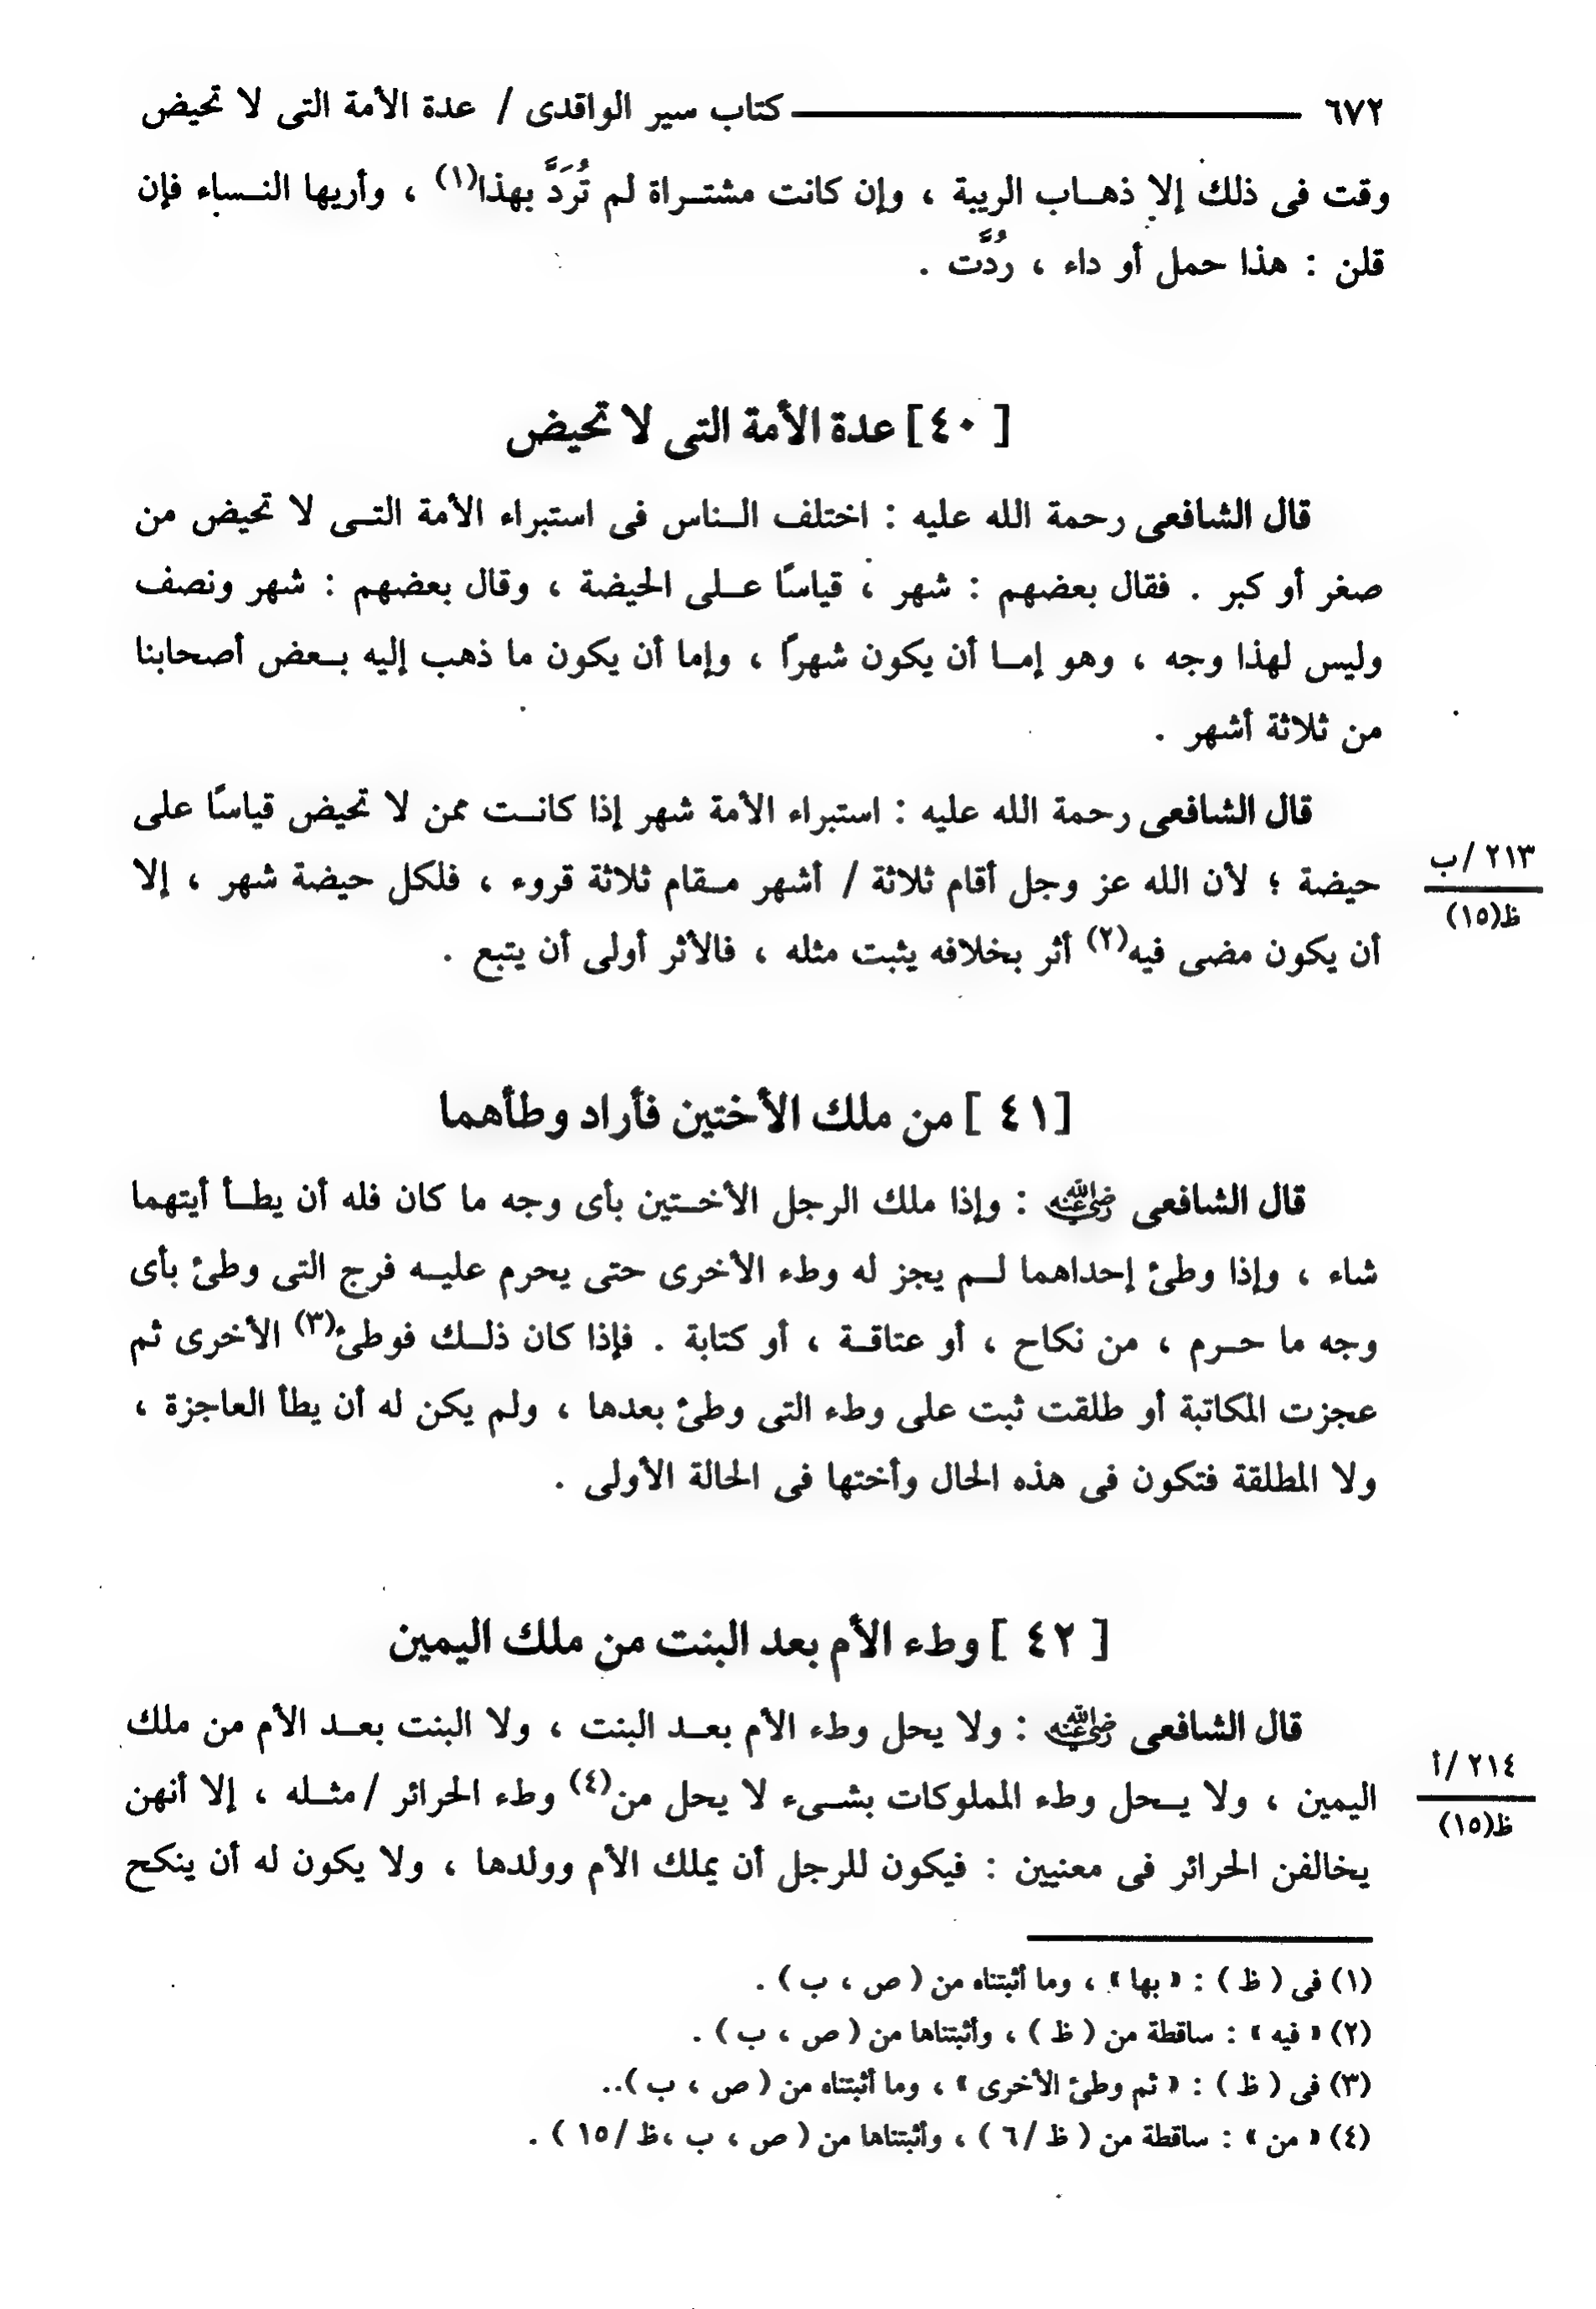 ٦٧٢ كتاب سير الواقدى / عدة الأمة التى لا تحيض
وقت فى ذلك إلا ذهـاب الريبة ، وإن كانت مشتـراة لم تُرَدَّ بهذا(١) ، وأريها النـساء فإن
قلن : هذا حمل أو داء ، رُدَّت .
[ ٤٠ ] عدة الأمة التى لا تحيض
قال الشافعى رحمة الله عليه : اختلف الـناس فى استبراء الأمة التـى لا تحيض من
صغر أو كبر . فقال بعضهم : شهر ، قياسًا عـلى الحيضة ، وقال بعضهم : شهر ونصف
وليس لهذا وجه ، وهو إمـا أن يكون شهرًا ، وإما أن يكون ما ذهب إليه بـعض أصحابنا
من ثلاثة أشهر .
قال الشافعى رحمة الله عليه : استبراء الأمة شهر إذا كانـت ممن لا تحيض قياسًا على
حيضة ؛ لأن الله عز وجل أقام ثلاثة / أشهر مـقام ثلاثة قروء ، فلكل حيضة شهر ، إلا
٢١٣ /ب
ظ(١٥)
أن يكون مضى فيه(٢) أثر بخلافه يثبت مثله ، فالأثر أولى أن يتبع .
[ ٤١ ] من ملك الأختين فأراد وطأهما
قال الشافعى رضي الله عنه : وإذا ملك الرجل الأخـتين بأى وجه ما كان فله أن يطـأ أيتهما
شاء ، وإذا وطئ إحداهما لـم يجز له وطء الأخرى حتى يحرم عليـه فرج التى وطئ بأى
وجه ما حـرم ، من نكاح ، أو عتاقـة ، أو كتابة . فإذا كان ذلـك فوطئ(٣) الأخرى ثم
عجزت المكاتبة أو طلقت ثبت على وطء التى وطئ بعدها ، ولم يكن له أن يطأ العاجزة ،
ولا المطلقة فتكون فى هذه الحال وأختها فى الحالة الأولى .
[ ٤٢ ] وطء الأم بعد البنت من ملك اليمين
قال الشافعى رضي الله عنه : ولا يحل وطء الأم بعـد البنت ، ولا البنت بعـد الأم من ملك
اليمين ، ولا يـحل وطء المملوكات بشـىء لا يحل من(٤) وطء الحرائر / مثـله ، إلا أنهن
٢١٤ /أ
ظ(١٥)
يخالفن الحرائر فى معنيين : فيكون للرجل أن يملك الأم وولدها ، ولا يكون له أن ينكح
(١) فى ( ظ ) : « بها » ، وما أثبتناه من ( ص ، ب ) .
(٢) « فيه » : ساقطة من ( ظ ) ، وأثبتناها من ( ص ، ب ) .
(٣) فى ( ظ ) : « ثم وطئ الأخرى » ، وما أثبتناه من ( ص ، ب )..
(٤) « من » : ساقطة من ( ظ /٦ ) ، وأثبتناها من ( ص ، ب ،ظ /١٥ ) .